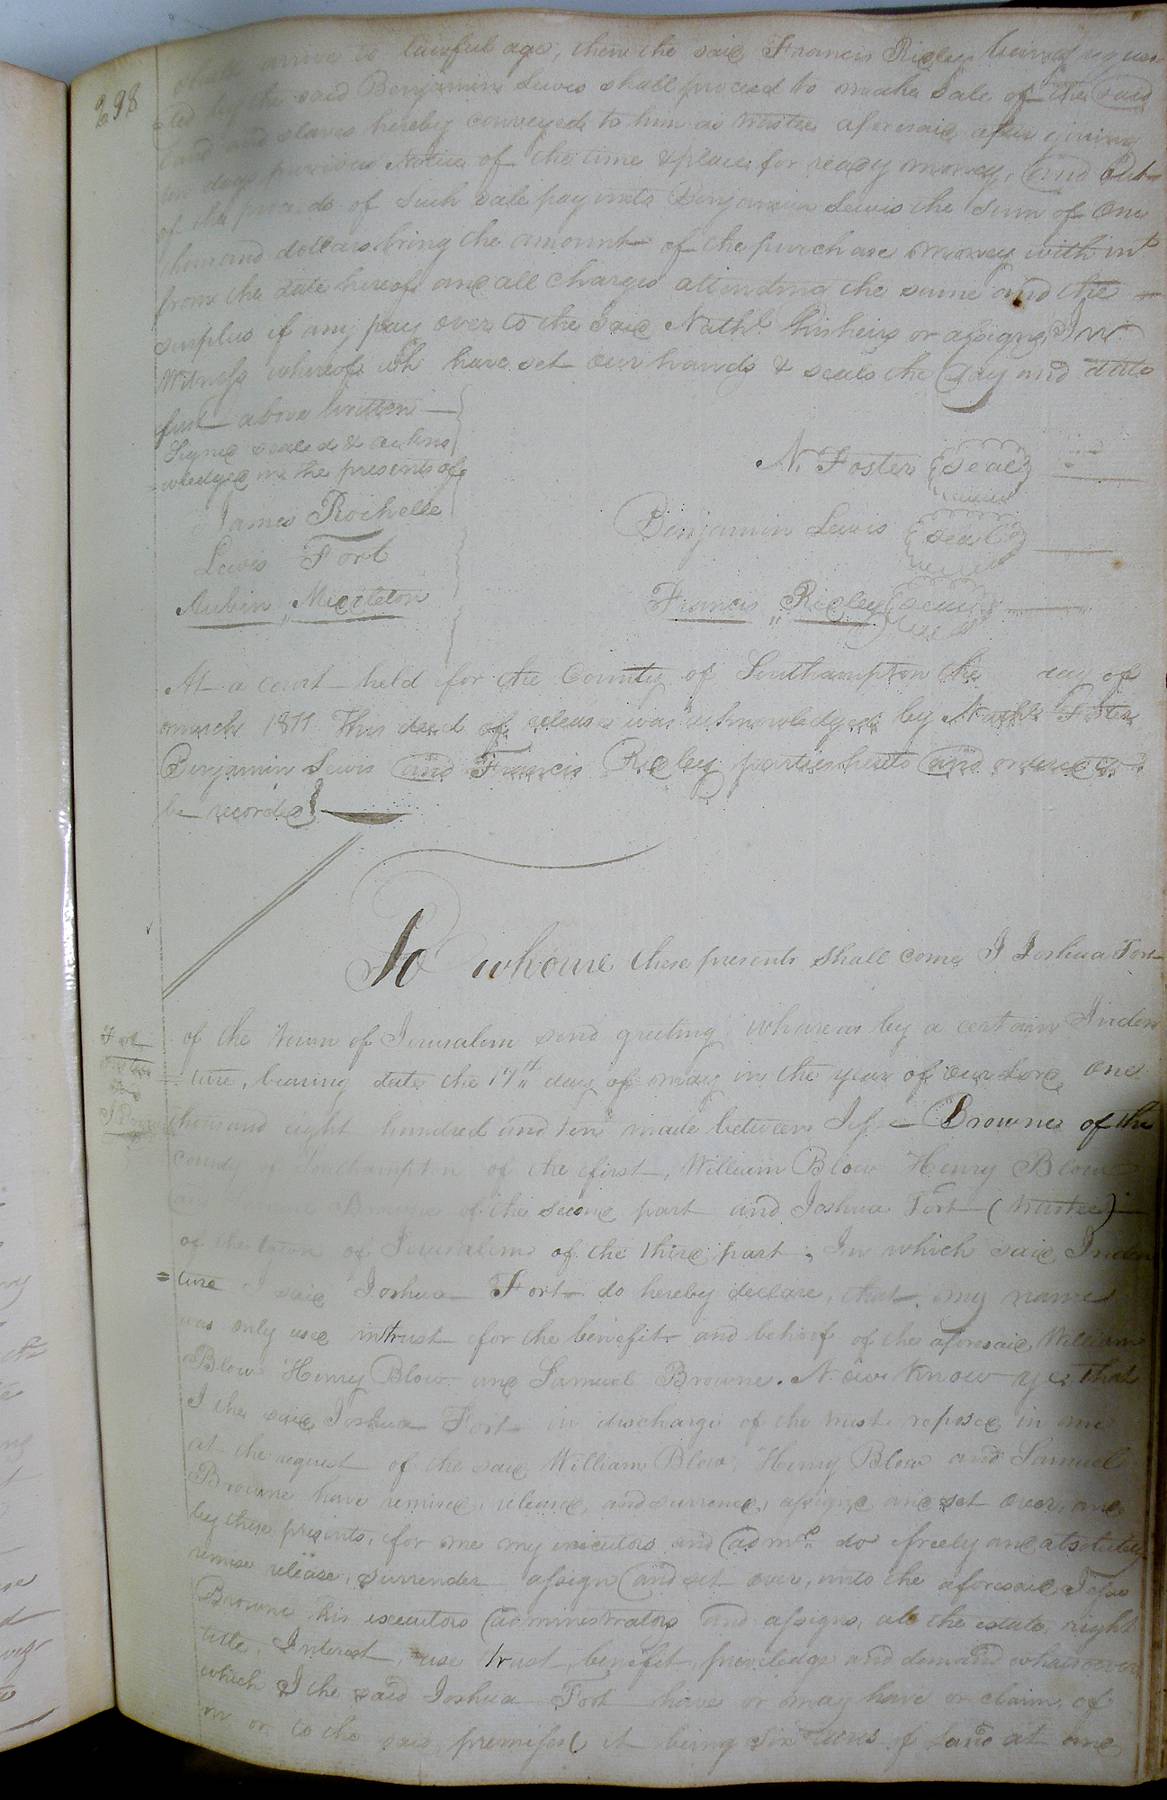 298
shall arrive to lawful age, then the said Francis Ridley being reques
=ted by the said Benjamin Lewis shall proceed to make Sale of the said
land and slaves hereby conveyed to him as trustee aforesaid after giving
ten days previous Notice of the time & place for ready money, and Out
of the proceeds of such sale pay unto Benjamin Lewis the Sum of One
thousand dollars being the amount of the purchase money with int
from the date hereof and all Charges attending the same and the
surplus if any pay over to the said Nathl his heirs or assigns, In
Witness whereof we have set our hands & seals the day and date
first above written
Signed sealed & ackno
=wledged in the presents of
N. Foster seal
James Rochelle
Benjamin Lewis seal
Lewis Fort
Aubin Middleton
Francis Ridley seal
At a court held for the County of Southampton the day of
march 1811 This deed of release was acknowledged by Nathl Foster
Benjamin Lewis and Francis Ridley parties hereto and ordered to
be recorded
To whome these presents shall come I Joshua Fort
of the town of Jerusalem send greeting whereas by a certain Inden
=ture, bearing date the 17th day of may in the year of our Lord one
Fort
thousand eight hundred and ten made between Jesse Browne of the
county of Southampton of the first, William Blow Henry Blow
and Samuel Browne of the second part and Joshua Fort (trustee)
of the town of Jerusalem of the third part, In which said Inden
=ture I said Joshua Fort do hereby declare, that my name
was only used intrust for the benefit and behoof of the aforesaid William
Blow Henry Blow and Samuel Browne. Now Know ye that
I the said Joshua Fort in discharge of the trust reposed in me
at the request of the said William Blow, Henry Blow and Samuel
Browne have remised, released, and surrended, assigned and set over, and
by these presents, for me my executors and admrs do freely and absolutely
remise release, surrender assign and set over, unto the aforesaid Jesse
Browne his executors administrators and assigns, all the estate, right
title, Interest, use trust, benefit, priviledge and demand whatsoever
which I the said Joshua Fort have or may have or claim, of
in or to the said premises it being six acres of Land at one